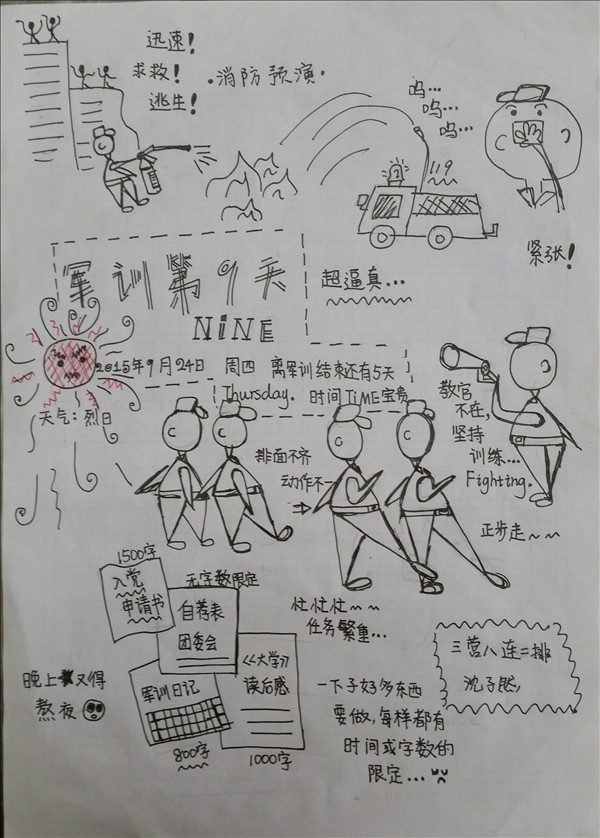 迅速!
求救!
逃生!
·消防预演·
呜…
呜…
呜…
119
紧张!
超逼真…
军训第9天
NiNE
2015年9月24日 周四 离军训结束还有5天
Thursday. 时间TiME宝贵
天气:烈日
教官
不在,
坚持
训练…
Fighting.
排面不齐
动作不一
正步走~~
1500字
入党
申请书
无字数限定
自荐表
团委会
忙忙忙~~
任务繁重…
《大学》
读后感
军训日记
800字
1000字
晚上又得
熬夜
一下子好多东西
要做,每样都有
时间或字数的
限定…
三营八连二排
沈子